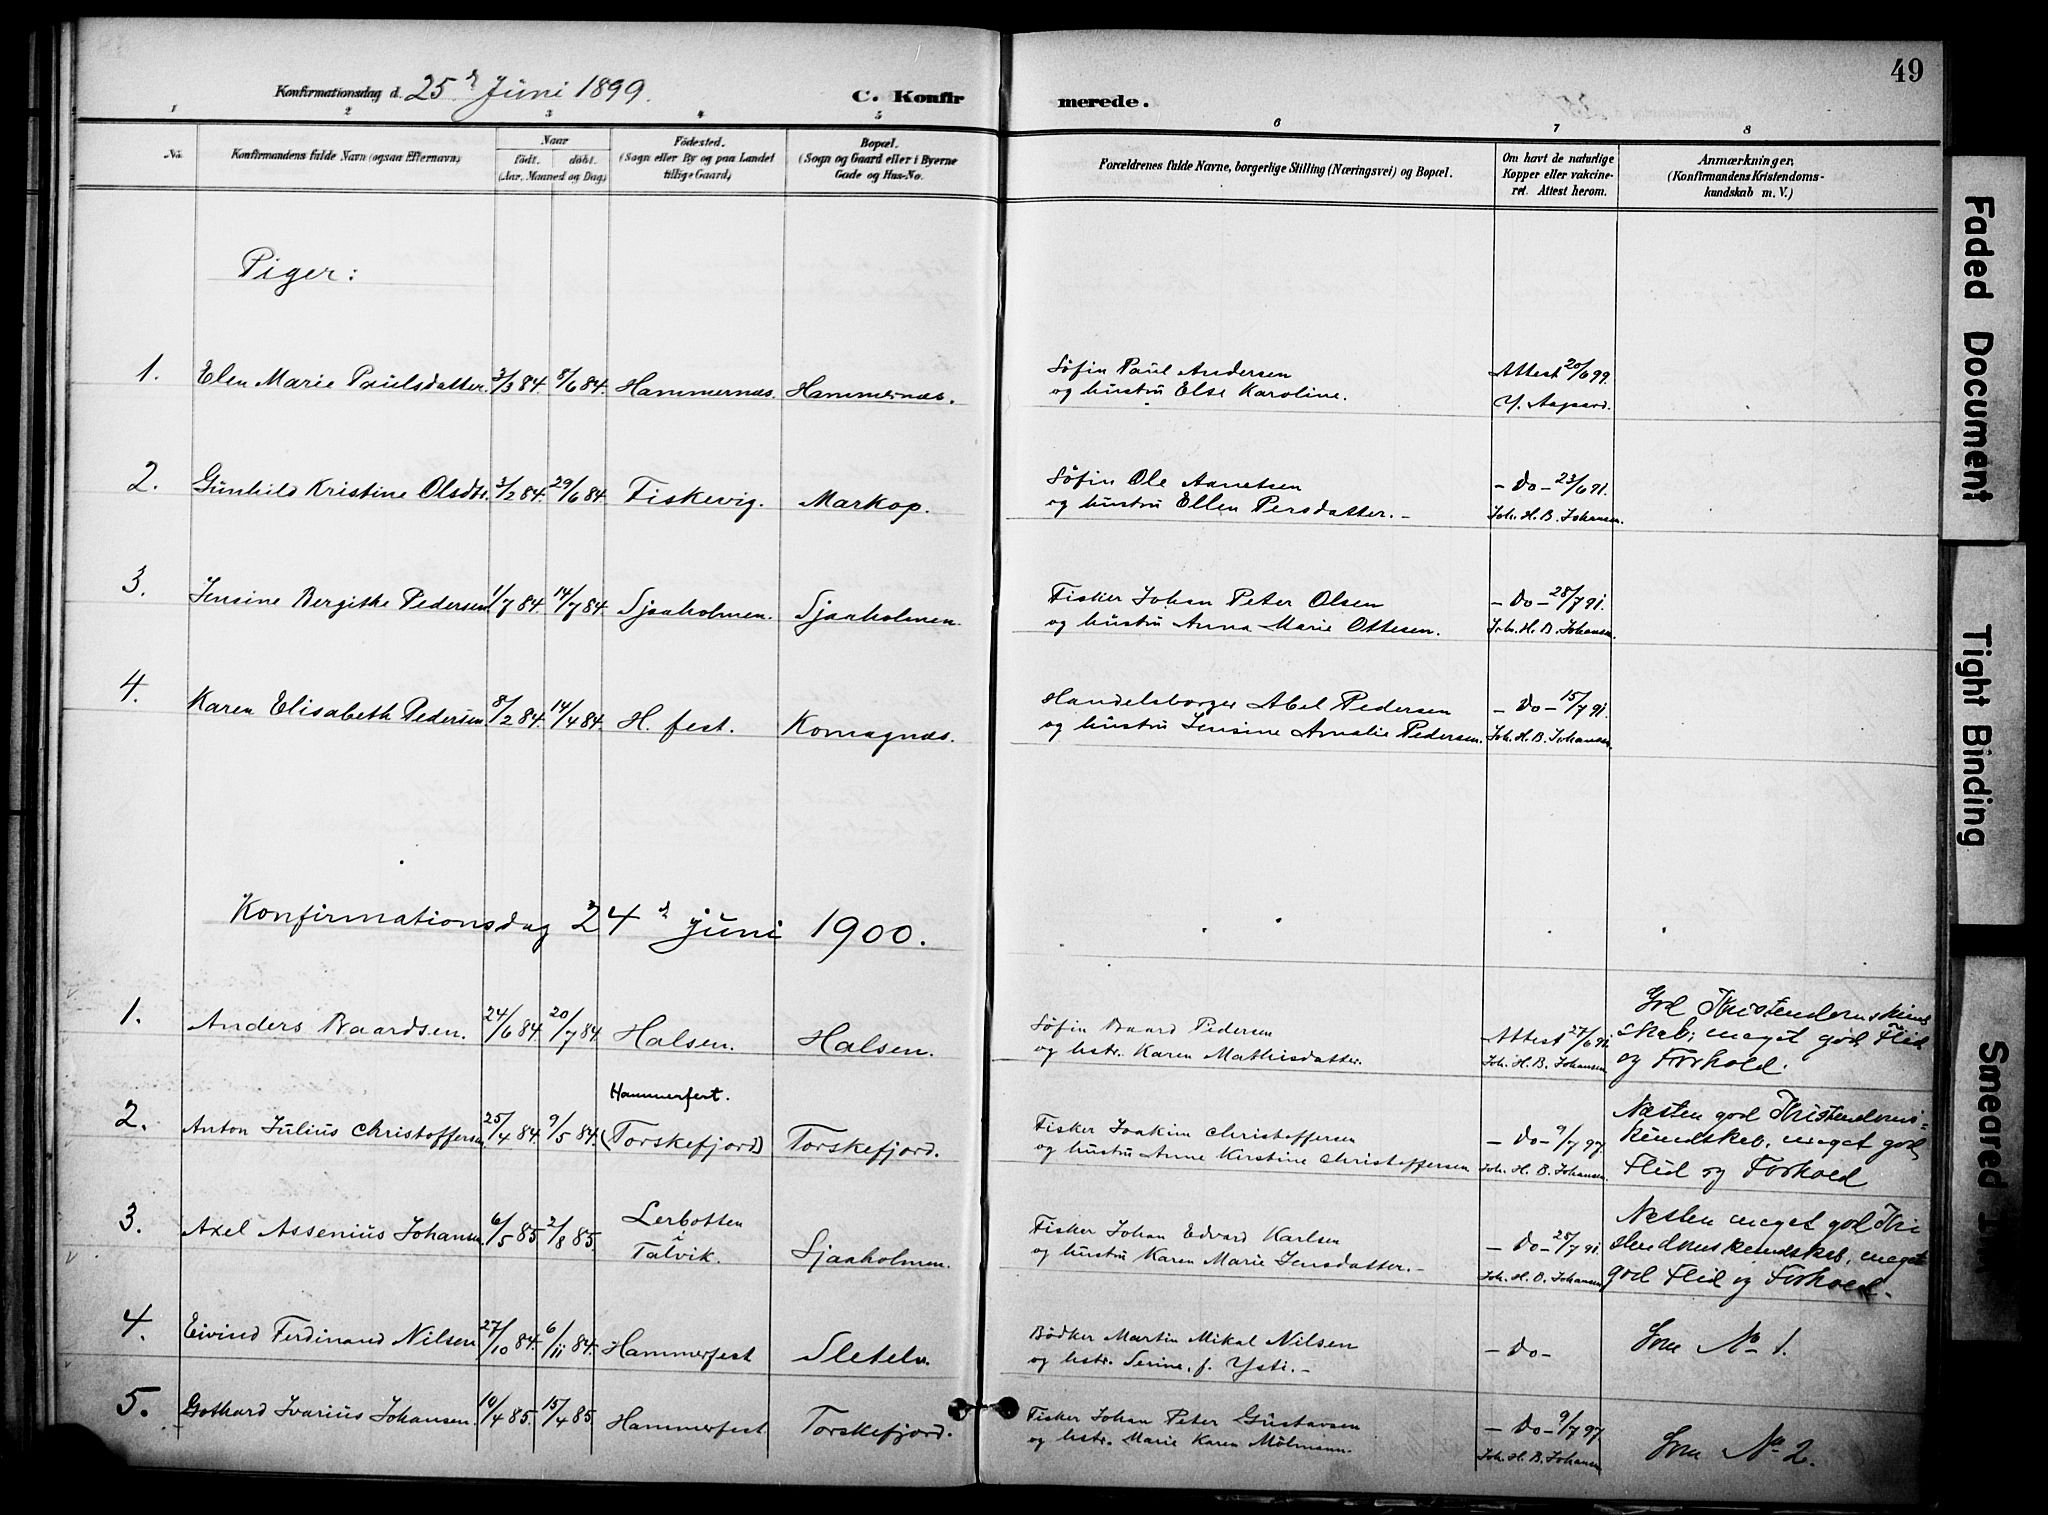 49
Konfirmationsdag d. 25 d Juni 1899.
C. Konfirmerede.
1 2 3 4 5 6 7 8
No.
Konfirmandens fulde Navn (ogsaa Efternavn)
Naar
födt. döbt.
(Aar, Maaned og Dag)
Födested.
(Sogn eller By og paa Landet
tillige Gaard)
Bopæl.
(Sogn og Gaard eller i Byerne
Gade og Hus-No.
Forældrenes fulde Navne, borgerlige Stilling (Næringsvei) og Bopæl.
Om havt de naturlige
Kopper eller vakcine-
ret. Attest herom.
Anmærkninger,
(Konfirmandens Kristendoms-
kundskab m. V.)
Piger:
1. Elen Marie Paulsdatter 3/3 84. 8/6 84. Hammernæs. Hammernæs. Søfin Paul Andersen Attest 20/6 99.
og hustru Else Karoline. Y. Aagaard.
2. Gunhild Kristine Olsdtr. 3/2 84. 29/6 84. Fiskevig. Markop. Søfin Ole Aanetsen – Do – 23/6 91.
og hustru Ellen Persdatter. – Joh. H. B. Johansen.
3. Jensine Bergithe Pedersen 1/7 84. 14/7 84. Sjaaholmen. Sjaaholmen. Fisker Johan Peter Olsen – Do – 28/7 91.
og hustru Anna Marie Ottesen. Joh. H. B. Johansen.
4. Karen Elisabeth Pedersen 8/2 84. 14/4 84. H. fest. Komagnæs. Handelsborger Abel Pedersen – Do – 15/7 91.
og hustru Jensine Amalie Pedersen. Joh. H. B. Johansen
Konfirmationsdag 24 d juni 1900.
1. Anders Baardsen. 24/6 84. 20/7 84. Halsen. Halsen. Søfin Baard Pedersen Attest 27/6 91.
og hstr. Karen Mathisdatter. Joh. H. B. Johansen
God Kristendomskund
skab, meget god Flid
og Forhold.
2. Anton Julius Christoffersen 25/4 84. 9/5 84. Hammerfest.
(Torskefjord) Torskefjord. Fisker Joakim Christoffersen – Do – 9/7 97.
og hustru Anne Kirstine Christoffersen Joh. H. B. Johansen.
Næsten god Kristendoms-
kundskab, meget god
Flid og Forhold
3. Axel Assenius Johansen 6/5 85 2/8 85. Lerbotten
i
Talvik. Sjaaholmen. Fisker Johan Edvard Karlsen – Do – 25/7 91.
og hustru Karen Marie Jensdatter. – Joh. H. B. Johansen
Næsten meget god Kri
stendomskundskab, meget
god Flid og Forhold.
4. Eivind Ferdinand Nilsen 27/10 84. 6/11 84. Hammerfest Sletelv. Bødker Martin Mikal Nilsen – Do –
og hstr. Serine, f. Ysti. –
Som No 1.
5. Gothard Ivarius Johansen. 10/4 85. 15/4 85. Hammerfest Torskefjord. Fisker Johan Peter Gustavsen – Do – 9/7 97.
og hstr. Marie Karen Mölmann. Joh. H. B. Johansen
Som No 2.
Faded Document
Tight Binding
Smeared